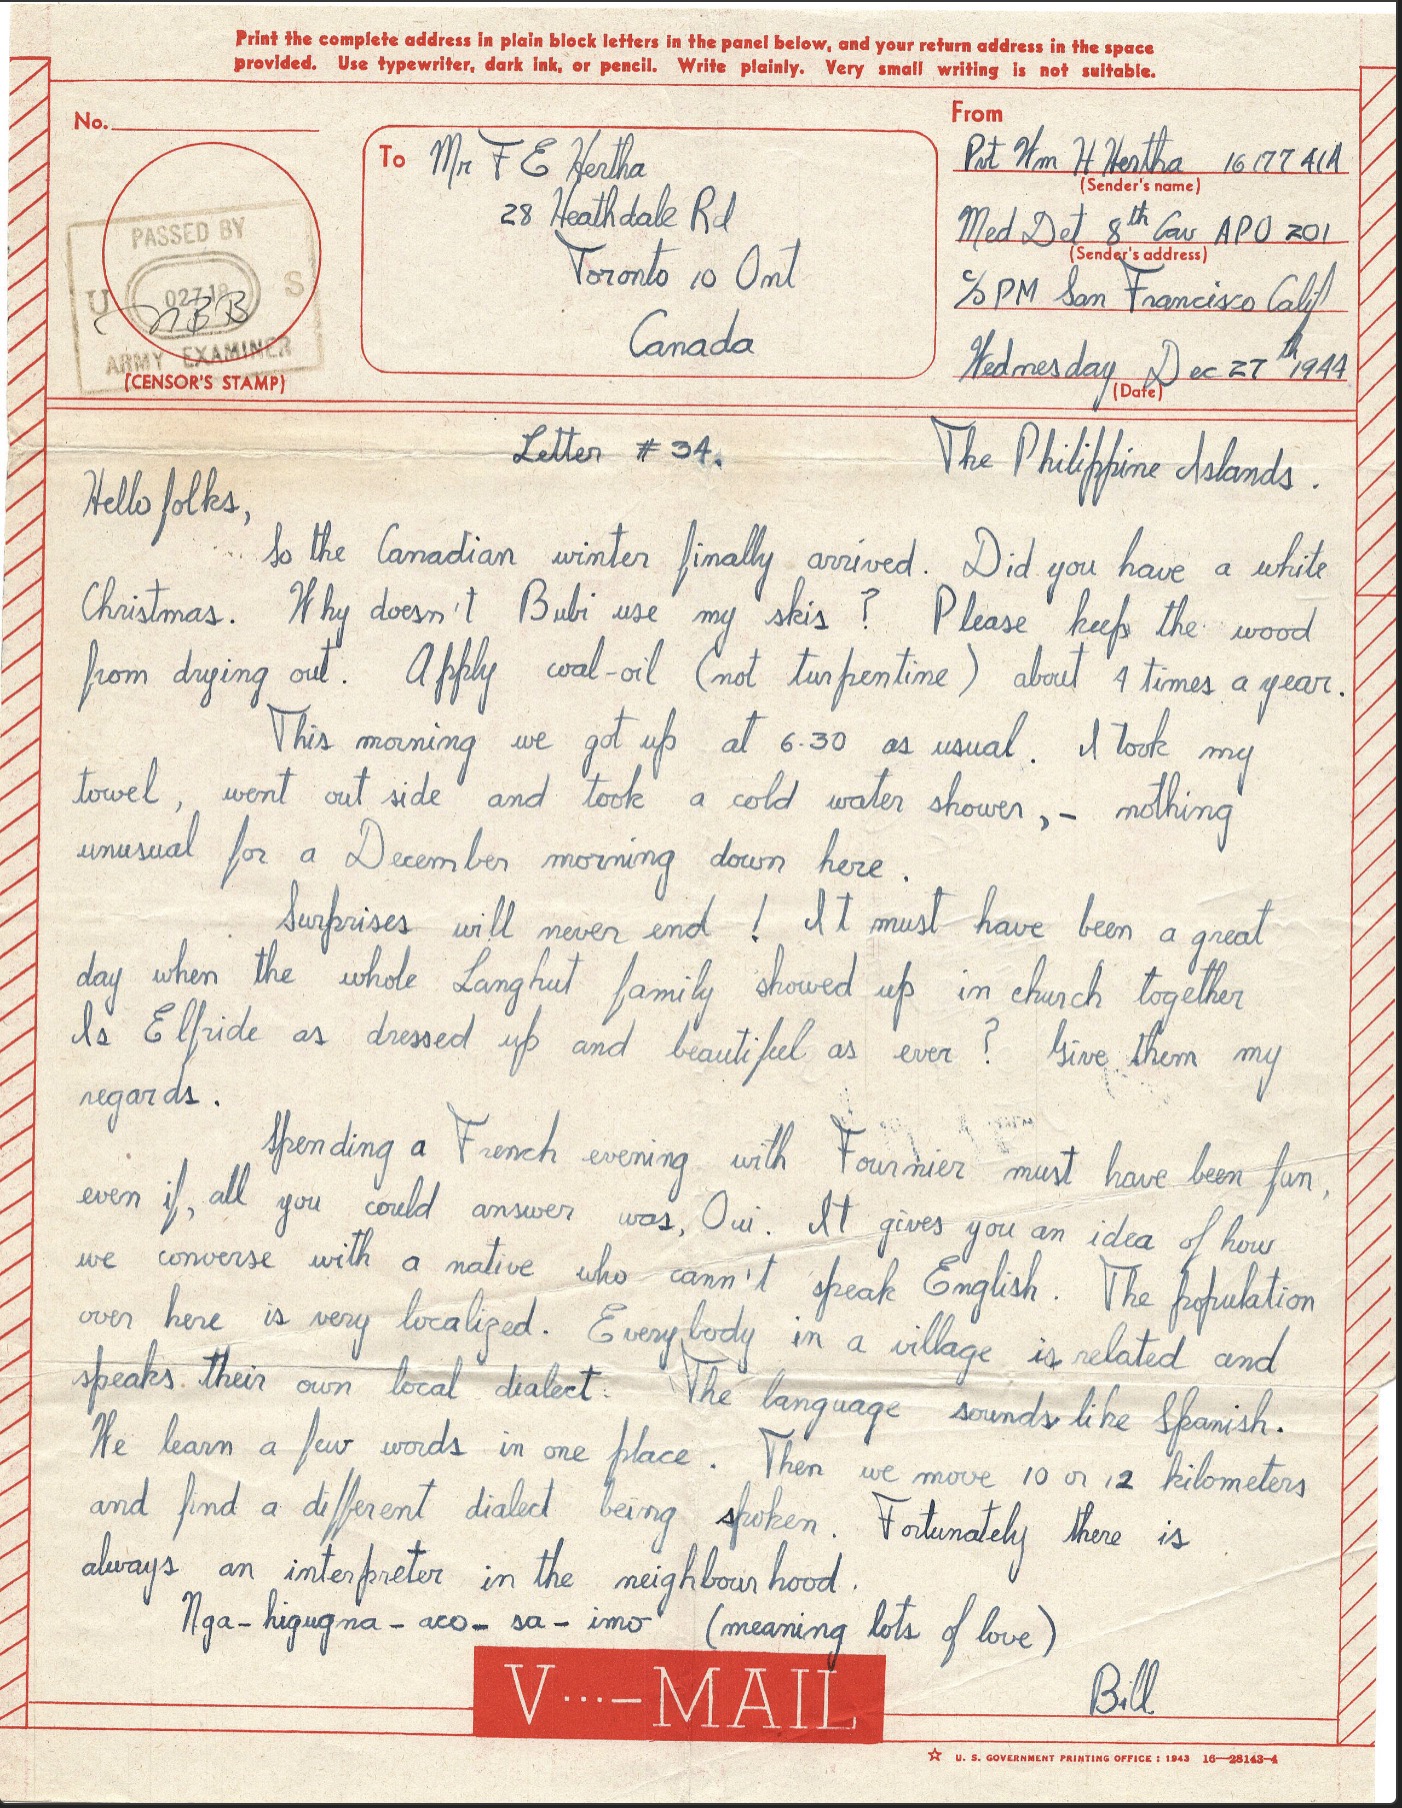 Print the complete address in plain block letters in the panel below, and your return address in the space
provided. Use typewriter, dark ink, or pencil. Write plainly. Very small writing is not suitable.
No.
PASSED BY
U S
ARMY EXAMINER
(CENSOR'S STAMP)
To Mr F E Hertha
28 Heathdale Rd
Toronto 10 Ont
Canada
From
Pvt Wm H Hertha 16177414
(Sender's name)
Med Det 8th Cav APO 201
(Sender's address)
c/o PM San Francisco Calif
Wednesday Dec 27th 1944
(Date)
Letter # 34. The Philippine Islands.
Hello folks,
So the Canadian winter finally arrived. Did you have a white
Christmas. Why doesn't Bubi use my skis? Please keep the wood
from drying out. Apply coal-oil (not turpentine) about 4 times a year.
This morning we got up at 6.30 as usual. I took my
towel, went out side and took a cold water shower,- nothing
unusual for a December morning down here.
Surprises will never end! It must have been a great
day when the whole Langhut family showed up in church together
Is Elfride as dressed up and beautiful as ever? Give them my
regards.
Spending a French evening with Fournier must have been fun,
even if, all you could answer was, Oui. It gives you an idea of how
we converse with a native who cann't speak English. The population
over here is very localized. Everybody in a village is related and
speaks their own local dialect. The language sounds like Spanish.
We learn a few words in one place. Then we move 10 or 12 kilometers
and find a different dialect being spoken. Fortunately there is
always an interpreter in the neighbourhood.
Nga-higugna-aco-sa-imo (meaning lots of love)
Bill
V···—MAIL
☆ U. S. GOVERNMENT PRINTING OFFICE : 1943 16—28143-4